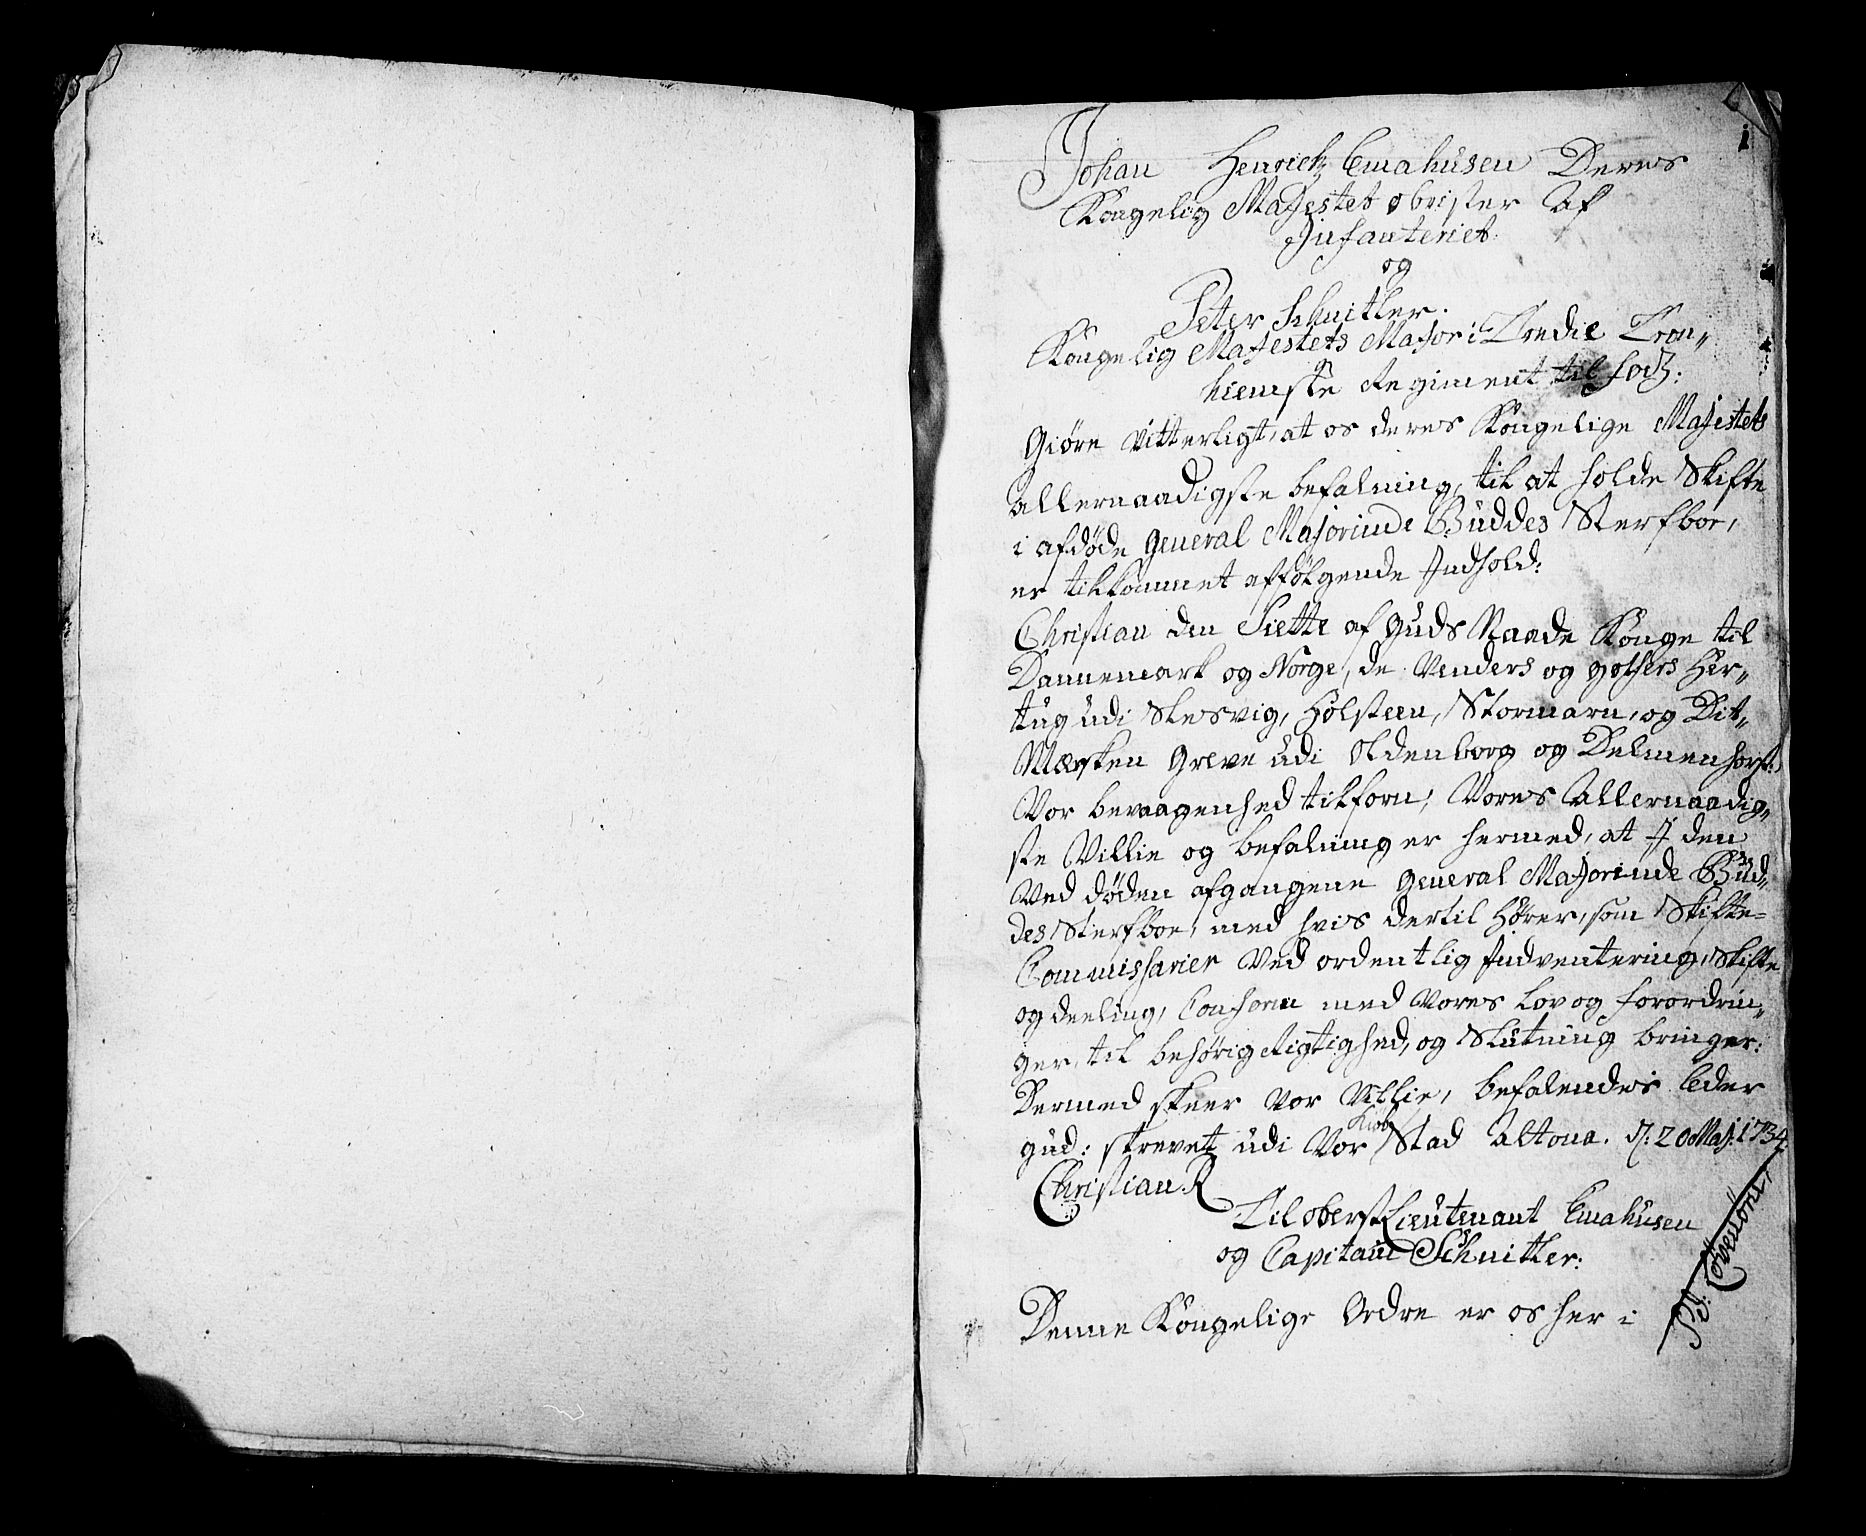 1
Johan Henrich Emahusen Deres
Kongelig Majestet obrister Af
Infanteriet
og
Peter Schnitler.
Kongelig Majestets Major i Tredie Tron„
hiemske Regiment til fods:
Giøre vitterligt, at os deres Kongelige Majestets
allernaadigste befalning, til at holde Skifte
i afdøde General Majorinde Büddes Sterfboe,
er tilkommet af følgende Indhold:
Christian den Siette af Guds Naade Konge til
Dannemark og Norge, de Venders og Gothers Her„
tug udi Slesvig, Holsteen, Stormarn, og Dit„
Mersken Greve udi Oldenborg og Delmenhorst:
Vor bevaagenhed tilforn; Vores Allernaadig„
ste Villie og befalning er hermed, at I den
Ved døden afgangene General Majorinde Büd„
des Sterfboe, med hvis dertil hører, som Skifte=
Commissarier Ved ordentlig Indventering, Skifte
og deeling, Conform med Vores Lov og forordnin„
ger, til behørig Rigtighed, og Slutning bringer:
Dermed skeer Vor Villie, befalendes Eder
gud: skrevet udi Vor Kiøb Stad Altona. d: 20 Maj: 1734
Christian R
Til oberst Lieutenant Emahusen
og Capitain Schnitler:
Løvenörn
Denne Kongelige Ordre er os her i